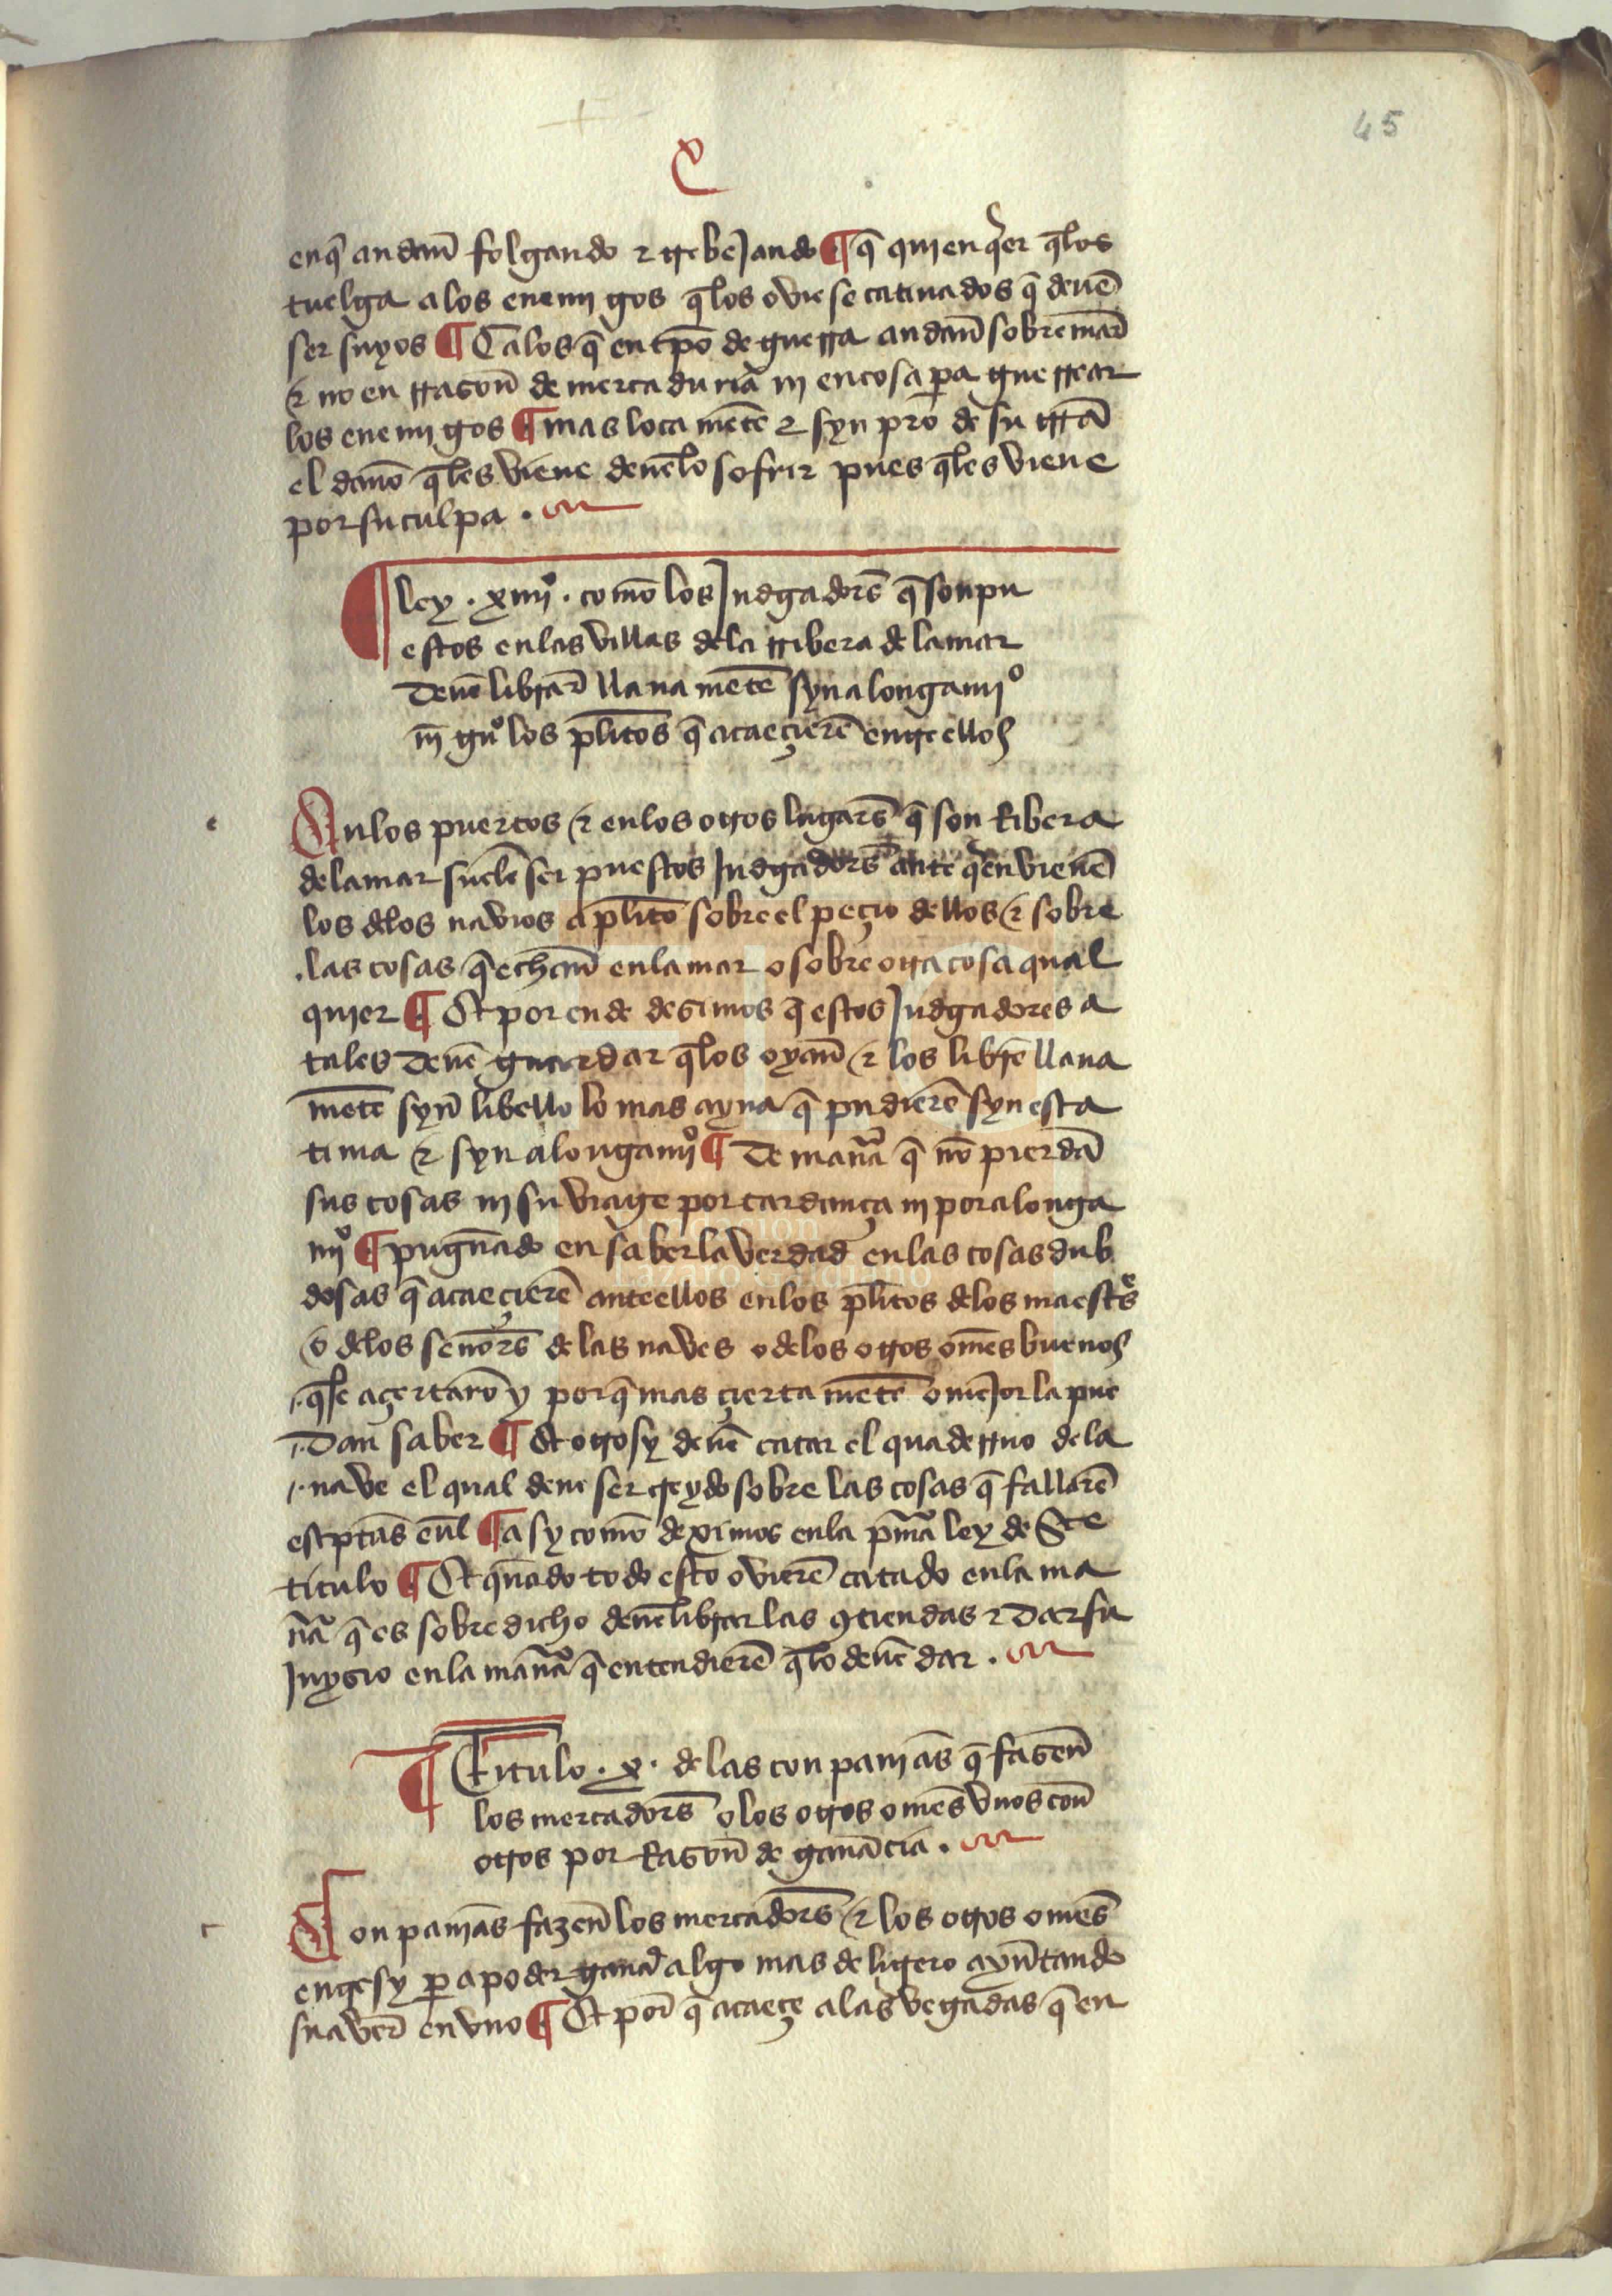 45
enq̃ andan̄ folgando ⁊ trebeJando ¶ q̃ quien q̃er q̃los
tuelga alos enemigos q̃los oviese catiuados q̃ deuē
ser suyos ¶ Ca los q̃ en tp̄o de guerra andan̄ sobre mar̄
⁊ no en rrason̄ de mercaduria ni en cosa p̱a guerrear
los enemigos ¶ mas loca mēte ⁊ syn pro de su trr̄a
el dan̄o q̃les viene deuēlo sofrir pues q̃les viene
por su culpa .
¶ ley . xiiijº . com̄o los Judgadorēs q̃ son pu
estos enlas villas dela rribera de la mar
deuē librar̄ llana mēte syn alongamiº
nī guº los pl̄itos q̃ acaeçierē entre ellos
Enlos puertos ⁊ enlos otros lugarēs q̃ son Ribera
dela mar suelē ser puestos Judgadorēs ante q̃en vienē
los delos navios a pl̄ito sobre el peçio dellos ⁊ sobre
las cosas q̃ echan̄ enla mar o sobre otra cosa qual
quier ¶ Et por ende desimos q̃ estos Judgadores a
tales deuē guardar q̃los oyan̄ ⁊ los librē llana
mēte syn̄ libello lo mas ayna q̃ pudierē syn esca
tima ⁊ syn alongamiº ¶ De man̄a q̃ nō pierdā
sus cosas ni su viage por tardança ni por alonga
miº ¶ pugnādo en saber la verdad en las cosas dub
dosas q̃ acaeçierē ante ellos enlos pl̄itos delos maestrˢ
o delos sen̄orēs de las naves o delos otros om̄es buenos
q̃se açertarō y por q̃ mas çierta mēte o meJor la pue
dan saber ¶ Et otrosy deuē catar el quaderrno dela
nave el qual deue ser creydo sobre las cosas q̃ fallarē
esc̃ptas en̄l ¶ asy com̄o deximos enla pm̄a ley deste
titulo ¶ Et qn̄ado todo esto ovierē catado enla ma
n̄a q̃ es sobre dicho deuē librar las 9tiendas ⁊ dar su
Juysio enla man̄a q̃ entendierē q̃lo deuē dar .
¶ Titulo . x . de las conpan̄ias q̃ fasen̄
los mercadorēs o los otros om̄es vnos con̄
otros por Rason̄ de ganācia .
Conpan̄ias fazen̄ los mercadorēs ⁊ los otros om̄es
entre sy p̱a poder ganar̄ algo mas de ligero ayun̄tando
su aver̄ en vno ¶ Et por̄ q̃ acaeçe alas vegadas q̃ en
Fundación
Lázaro Galdiano